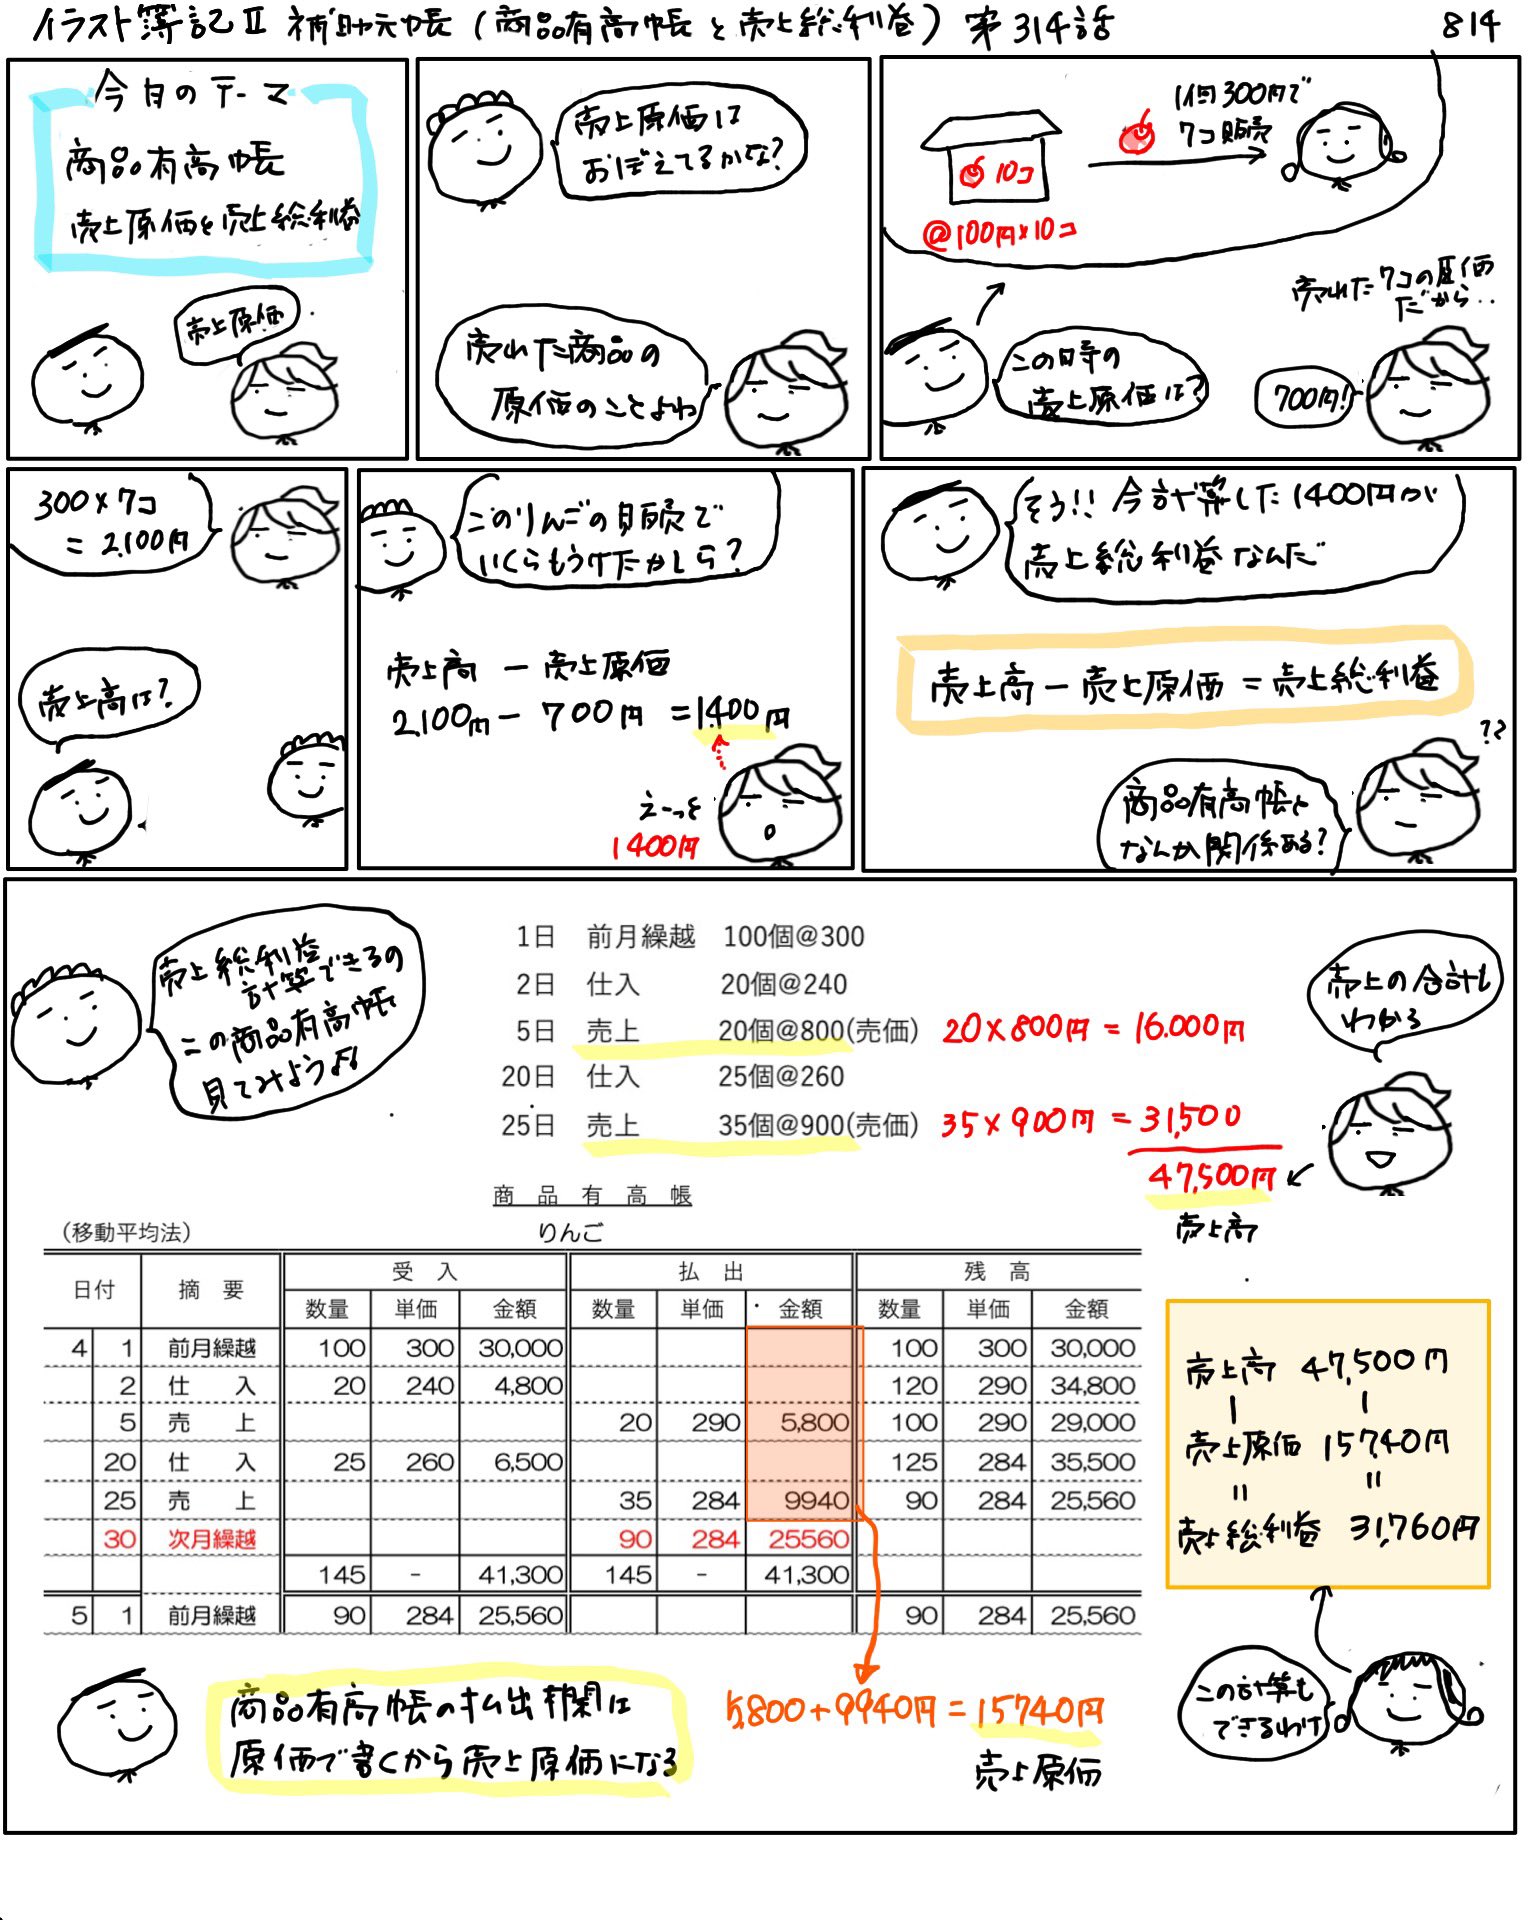 イラスト簿記Ⅱ 補助元帳(商品有高帳と売上総利益) 第314話 814
今日のテーマ
商品有高帳
売上原価と売上総利益
売上原価
売上原価は
おぼえてるかな?
売れた商品の
原価のことよね
1個300円で
7コ販売
10コ
@100円×10コ
売れた7コの原価
だから..
この時の
売上原価は?
700円!
300×7コ
=2,100円
売上高は?
このりんごの販売で
いくらもうけたかしら?
売上高 − 売上原価
2,100円 − 700円 = 1400円
えーっと
1400円
そう!! 今計算した1400円が
売上総利益なんだ
売上高 − 売上原価 = 売上総利益
??
商品有高帳と
なんか関係ある?
売上総利益
計算できるの
この商品有高帳
見てみようよ!!
1日 前月繰越 100個@300
2日 仕入 20個@240
5日 売上 20個@800(売価) 20×800円=16.000円
20日 仕入 25個@260
25日 売上 35個@900(売価) 35×900円=31,500
47,500円
売上高
売上の合計も
わかる
商品有高帳
(移動平均法) りんご
日付 摘要 受入 払出 残高
数量 単価 金額 数量 単価 金額 数量 単価 金額
4 1 前月繰越 100 300 30,000 100 300 30,000
2 仕入 20 240 4,800 120 290 34,800
5 売上 20 290 5,800 100 290 29,000
20 仕入 25 260 6,500 125 284 35,500
25 売上 35 284 9940 90 284 25,560
30 次月繰越 90 284 25560
145 - 41,300 145 - 41,300
5 1 前月繰越 90 284 25,560 90 284 25,560
売上高 47,500円
− −
売上原価 15740円
= =
売上総利益 31,760円
商品有高帳の払出欄は
原価で書くから売上原価になる
5,800+9940円=15740円
売上原価
この計算も
できるわけ